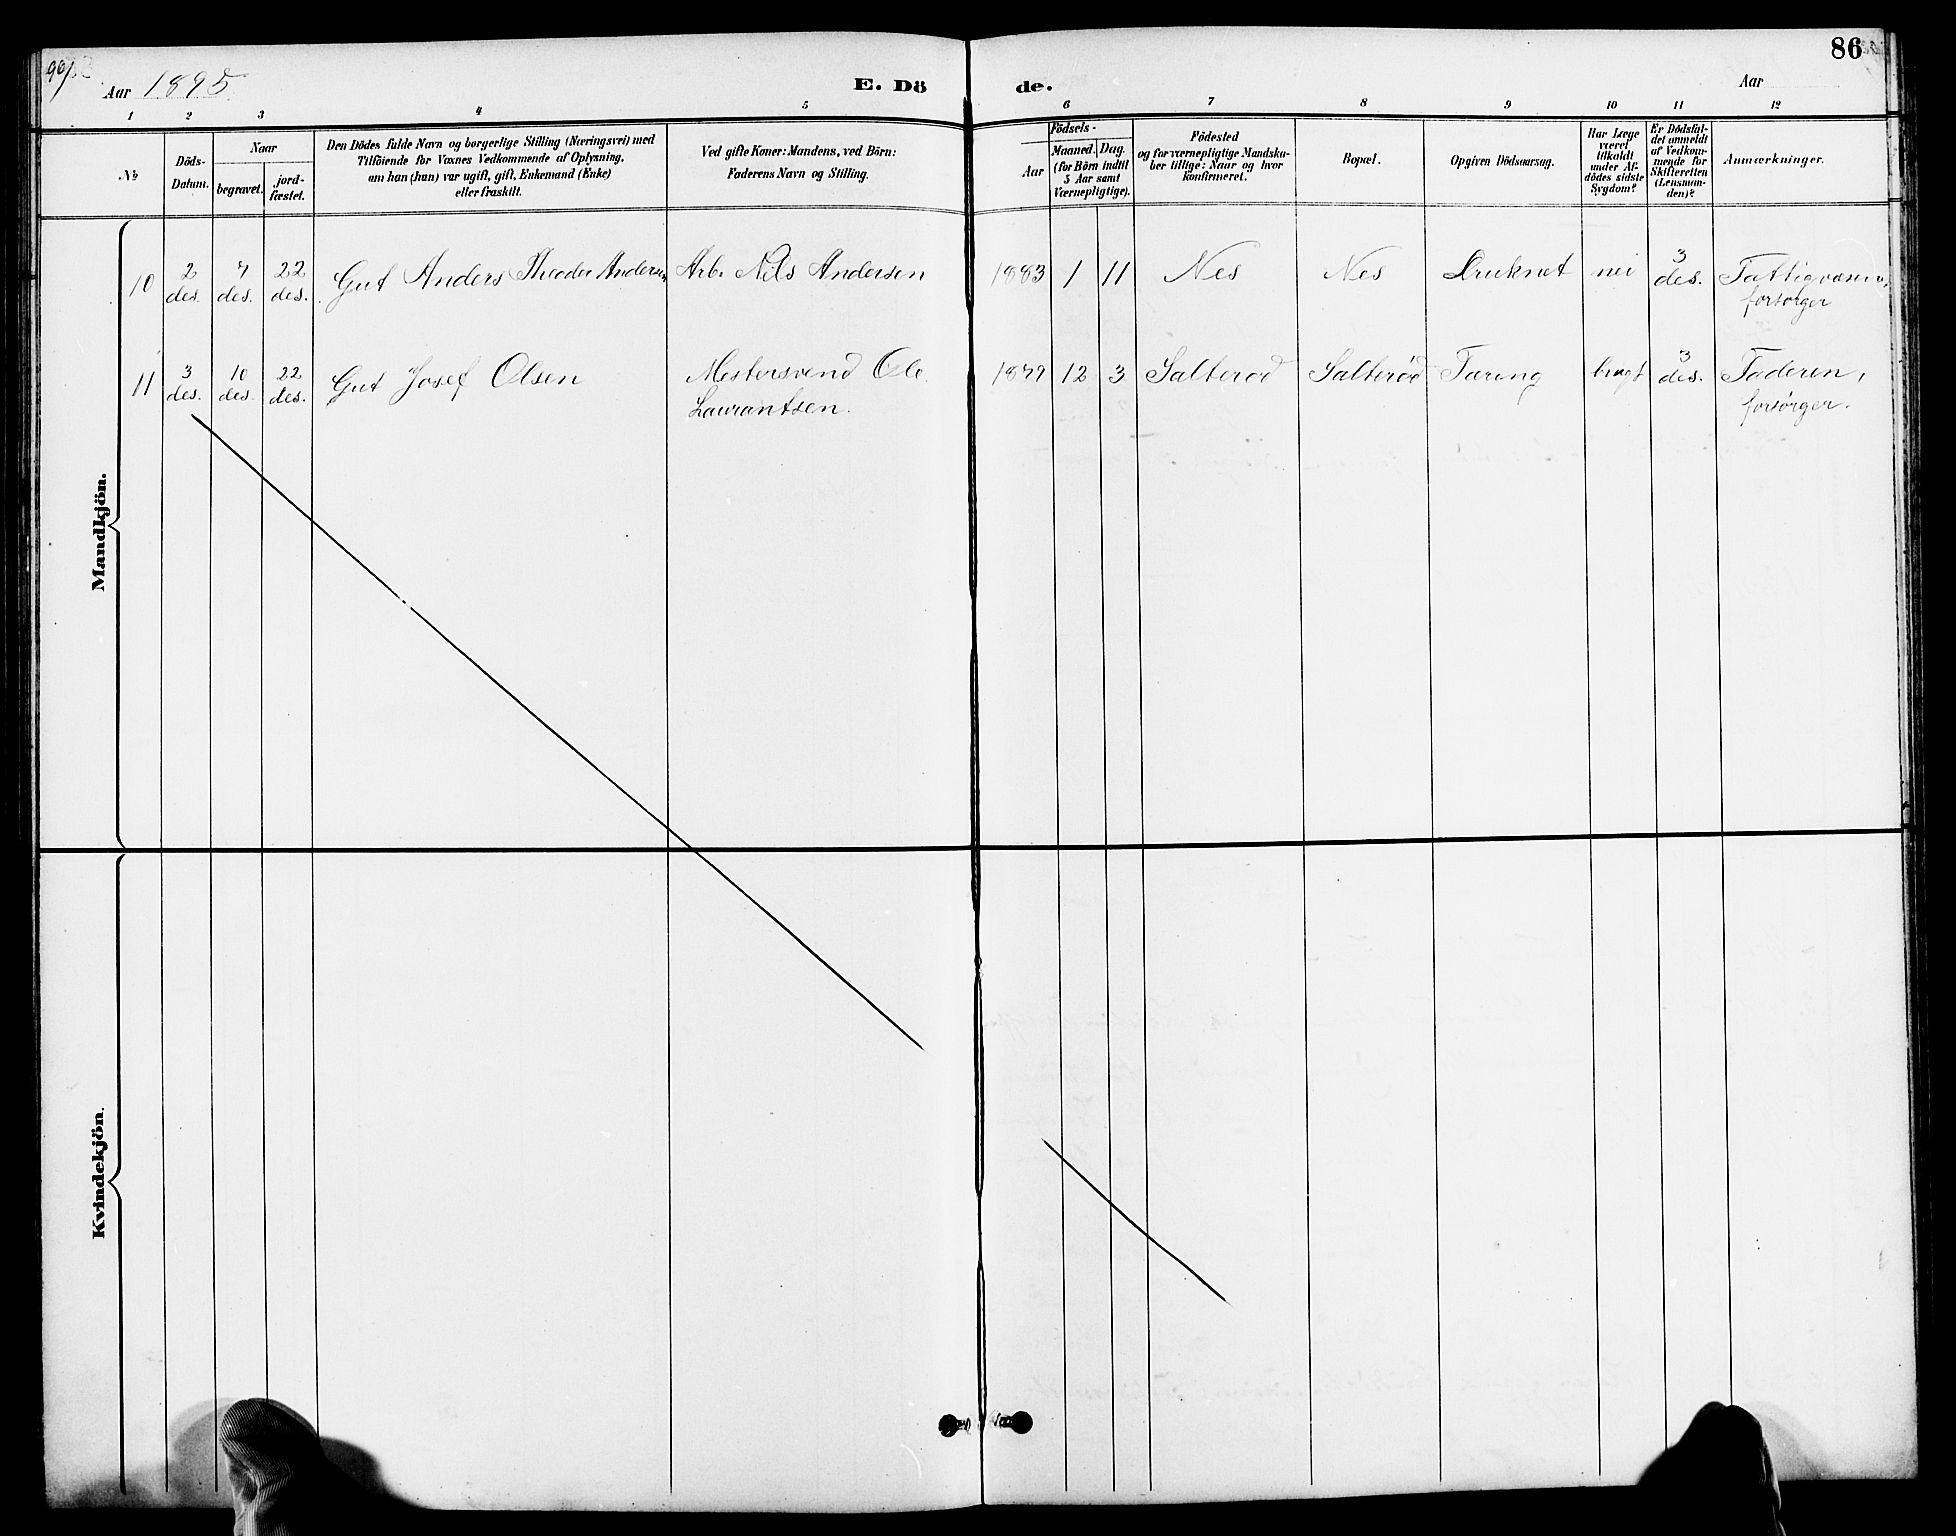 86
Aar 1895.
E. Dö de.
Aar
1 2 3 4 5 6 7 8 9 10 11 12
№
Döds-
Datum.
Naar
begravet.
jord-
fæstet.
Den Dödes fulde Navn og borgerlige Stilling (Næringsvei) med
Tilföiende for Voxnes Vedkommende af Oplysning,
om han (hun) var ugift, gift, Enkemand (Enke)
eller fraskilt.
Ved gifte Koner: Mandens, ved Börn:
Faderens Navn og Stilling.
Födsels-
Aar
Maaned. Dag.
(for Börn indtil
5 Aar samt
Værnepligtige).
Födested
og for værnepligtige Mandska-
ber tillige: Naar og hvor
konfirmeret.
Bopæl.
Opgiven Dödsaarsag.
Har Læge
været
tilkaldt
under Af-
dödes sidste
Sygdom?
Er Dödsfal-
det anmeldt
af Vedkom-
mende for
Skifteretten
(Lensman-
den)?
Anmærkninger.
Mandkjön.
10 2 des. 7 des. 22 des. Gut Anders Theodor Andersen Arb. Nils Andersen 1883 1 11 Nes Nes Druknet nei 3 des. Fattigvæsenet
forsørger
11 3 des. 10 des. 22 des. Gut Josef Olsen Mestersvend Ole 1879 12 3 Salterød Salterød Tæring brugt 3 des. Faderen,
Laurantsen. forsørger.
Kvindekjön.